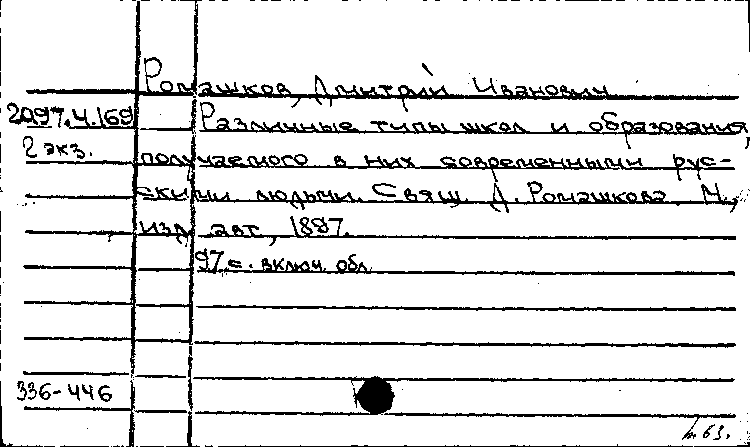 Ромашков, Дмитрий Иванович
2097.4.169 Различные типы школ и образования,
2 экз. получаемого в них современными рус-
скими людьми. Свящ. Д. Ромашкова. М.,
изд. авт., 1897.
97 с. включ. обл.
336-446